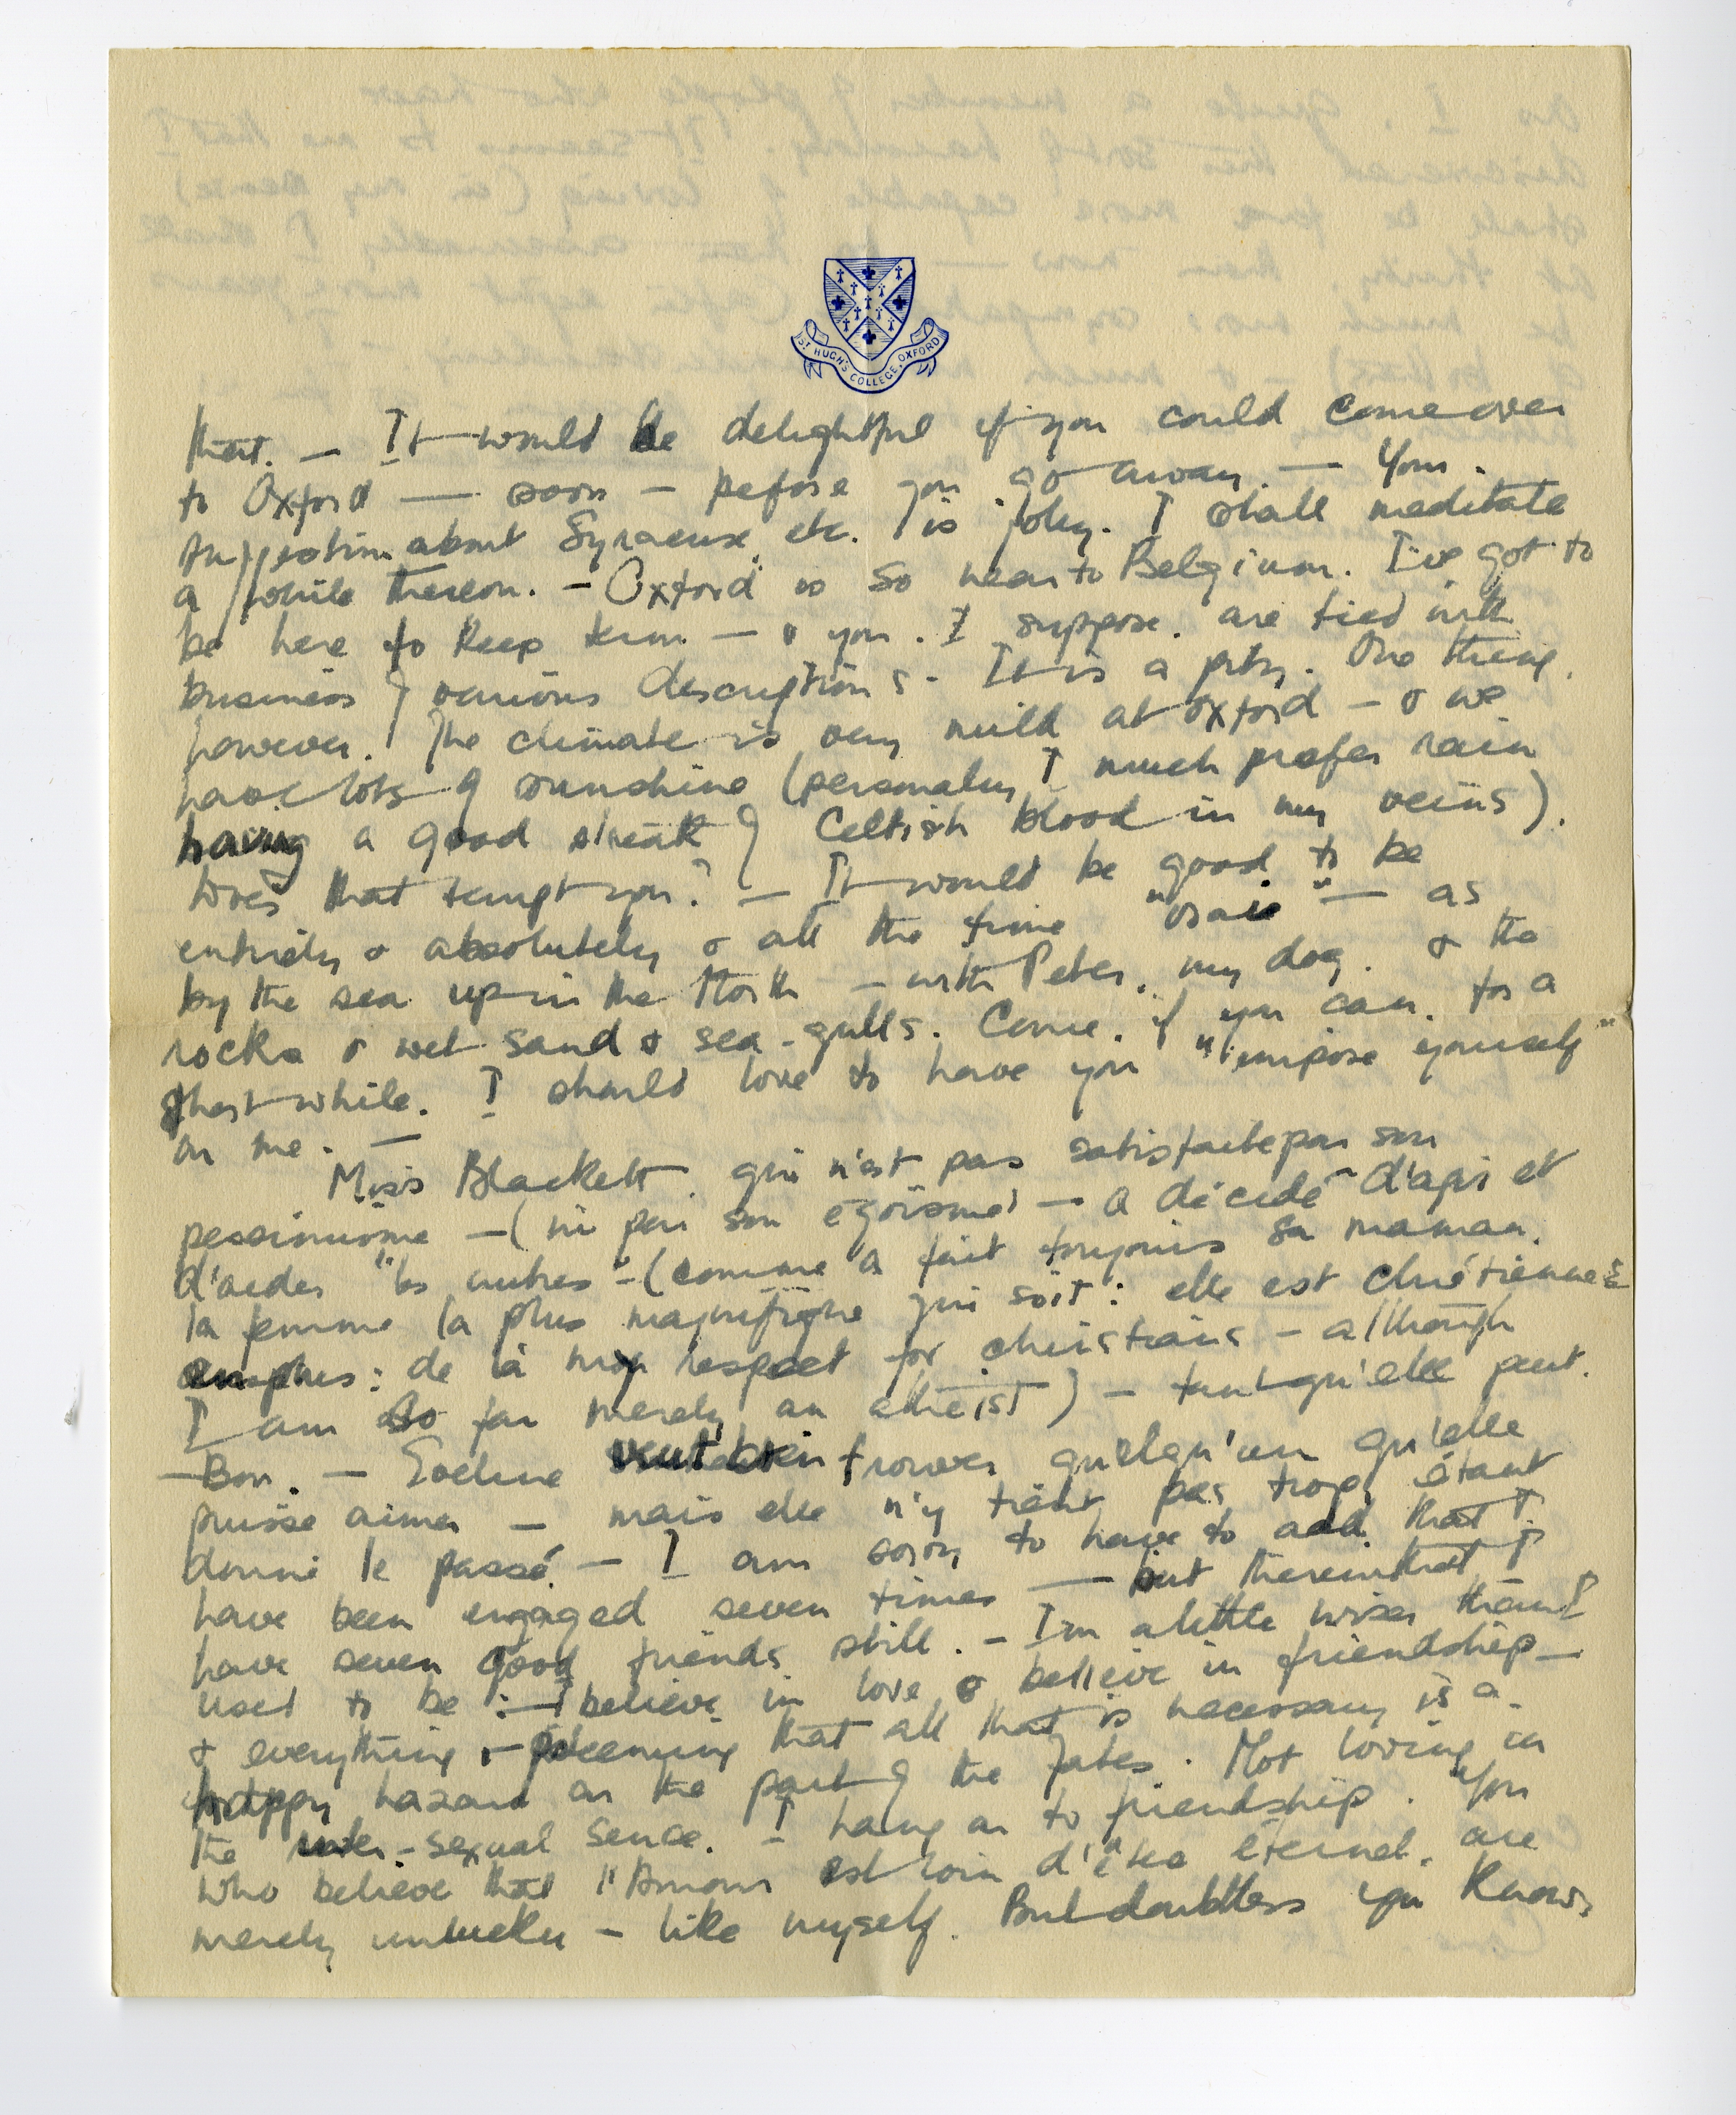 ST HUGH'S COLLEGE, OXFORD
that. — It would be delightful if you could come over
to Oxford — soon — before you go away. — Your
suggestion about Syracuse etc. is jolly. I shall meditate
a while thereon. — Oxford is so near to Belgium. I've got to
be here to keep term — & you, I suppose, are tied with
business of various descriptions. It is a pity. One thing,
however. The climate is very mild at Oxford — & we
have lots of sunshine (personally I much prefer rain
having a good streak of Celtish blood in my veins).
Does that tempt you? — It would be good to be
entirely & absolutely & all the time "vraie" — as
by the sea up in the North — with Peter, my dog, & the
rocks & wet sand & sea-gulls. Come, if you can, for a
short while. I should love to have you "impose yourself"
on me. —
Miss Blackett, qui n'est pas satisfaite par son
pessimisme — (ni par son egoïsme) — a décidé d'agir et
d'aider "les autres" — (comme a fait toujours sa maman,
la femme la plus magnifique qui soit: elle est chrétienne
en plus: de là my respect for christians — although
I am so far merely an atheist) — tant qu'elle peut.
— Bon. — Eveline veut bien trouver quelqu'un qu'elle
puisse aimer — mais elle n'y tient pas trop étant
donné le passé. — I am sorry to have to add that I
have been engaged seven times — but therein that I
have seven good friends still. — I'm a little wiser than I
used to be: — I believe in love & believe in friendship —
& everything & — deeming that all that is necessary is a
happy hazard on the part of the fates. Not loving in
the sexual sence. — I hang on to friendship. You
who believe that l'Amour est loin d'être éternel, are
merely unlucky — like myself. But doubtless you know,